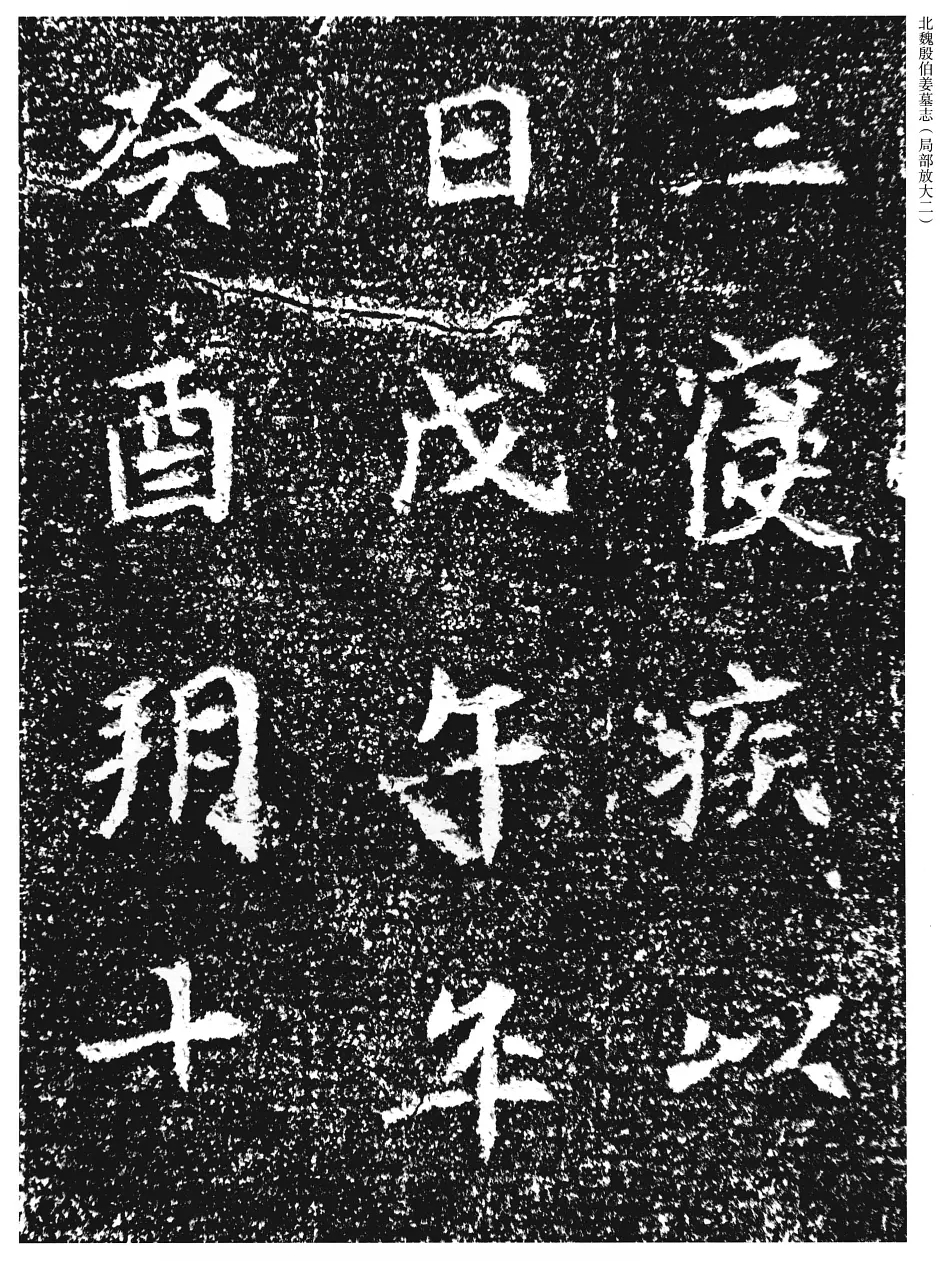 北魏殷伯姜墓志（局部放大二）
三寑疾以
日戊午年
癸酉朔十